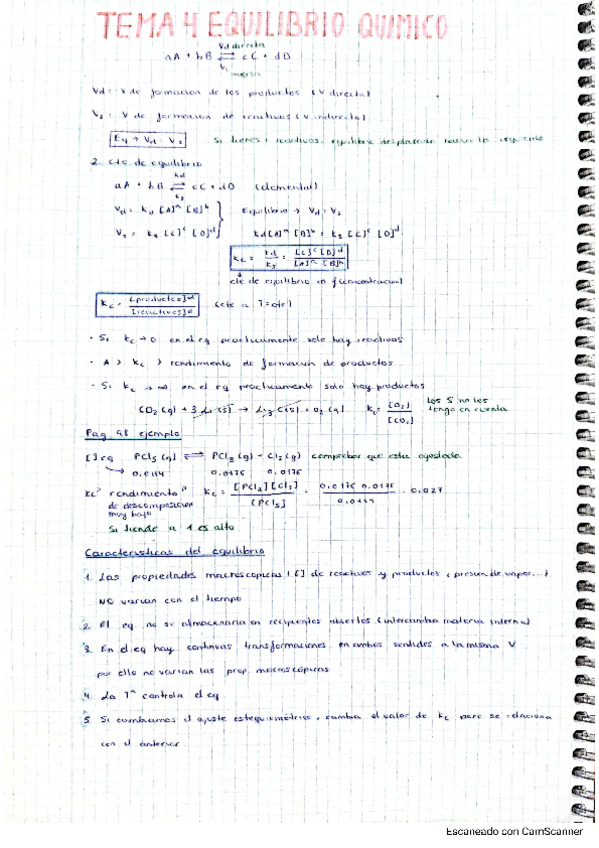 TEMA 4 EQUILIBRIO QUIMICO
Vd directa
aA + bB ⇄ cC + dD
inversa
Vd = V de formacion de los productos (V directa)
V₂ = V de formacion de reactivos (V indirecta)
Eq → Vd = V₂ Si tienes reactivos, equilibrio desplazado hacia la izquierda
2. cte de equilibrio
kd
aA + bB ⇄ cC + dD (elemental)
k₂
Vd = kd [A]ᵃ [B]ᵇ Equilibrio → Vd = V₂
V₂ = k₂ [C]ᶜ [D]ᵈ kd[A]ᵃ [B]ᵇ = k₂ [C]ᶜ [D]ᵈ
kc = kd / k₂ = [C]ᶜ [D]ᵈ / [A]ᵃ [B]ᵇ
cte de equilibrio en f(concentracion)
kc = [productos] / [reactivos] (cte a T=cte)
· Si kc → 0 en el eq practicamente solo hay reactivos
· A > kc > rendimiento de formacion de productos
· Si kc → ∞, en el eq practicamente solo hay productos
CO₂ (g) + (s) → (s) + O₂ (g) kc = [O₂] / [CO₂] los S no los tengo en cuenta
Pag 98 ejemplo
[ ] eq PCl₅ (g) ⇄ PCl₃ (g) + Cl₂ (g) comprobar que esta ajustada
0.0176 0.0176
kc? rendimiento? kc = [PCl₃][Cl₂] / [PCl₅] = 0.0176 · 0.0176 / = 0.027
de descomposicion
muy bajo
Si tiende a 1 es alto
Caracteristicas del equilibrio
1. Las propiedades macroscopicas ( [ ] de reactivos y productos, presion de vapor...)
NO varian con el tiempo
2. El eq no se almacenaria en recipientes abiertos (intercambia materia interna)
3. En el eq hay continuas transformaciones en ambos sentidos a la misma V
por ello no varian las prop. macroscópicas
4. La Tª controla el eq
5 Si cambiamos el ajuste estequiométrico, cambia el valor de kc pero se relaciona
con el anterior
Escaneado con CamScanner